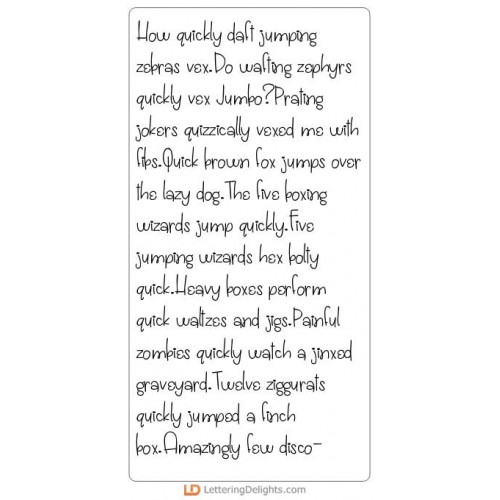 How quickly daft jumping
zebras vex.Do wafting zephyrs
quickly vex Jumbo?Prating
jokers quizzically vexed me with
fibs.Quick brown fox jumps over
the lazy dog.The five boxing
wizards jump quickly.Five
jumping wizards hex bolty
quick.Heavy boxes perform
quick waltzes and jigs.Painful
zombies quickly watch a jinxed
graveyard.Twelve ziggurats
quickly jumped a finch
box.Amazingly few disco-
LD LetteringDelights.com